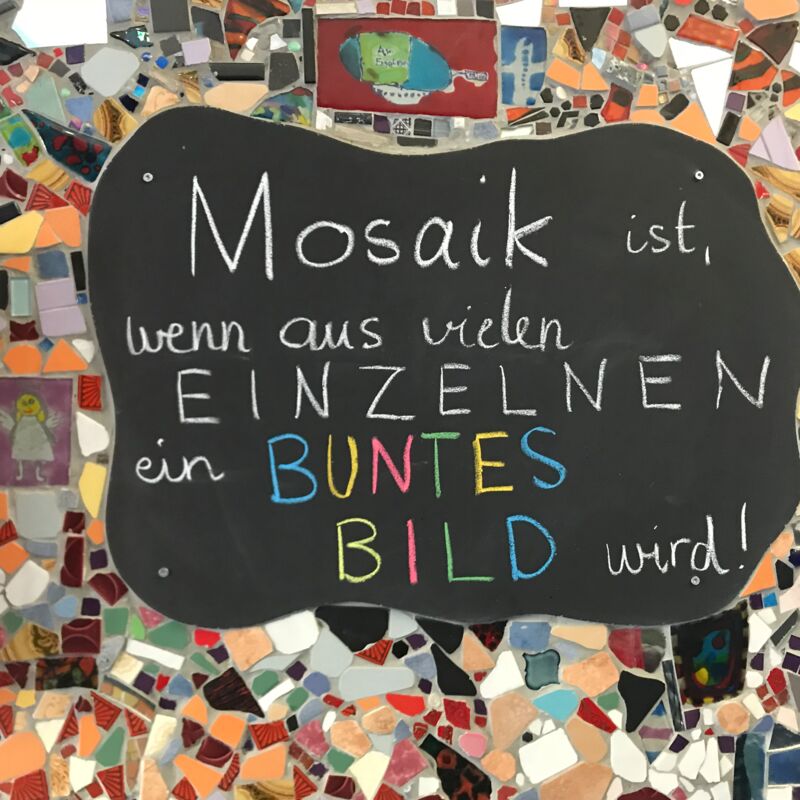 Mosaik ist,
wenn aus vielen
EINZELNEN
ein BUNTES
BILD wird!